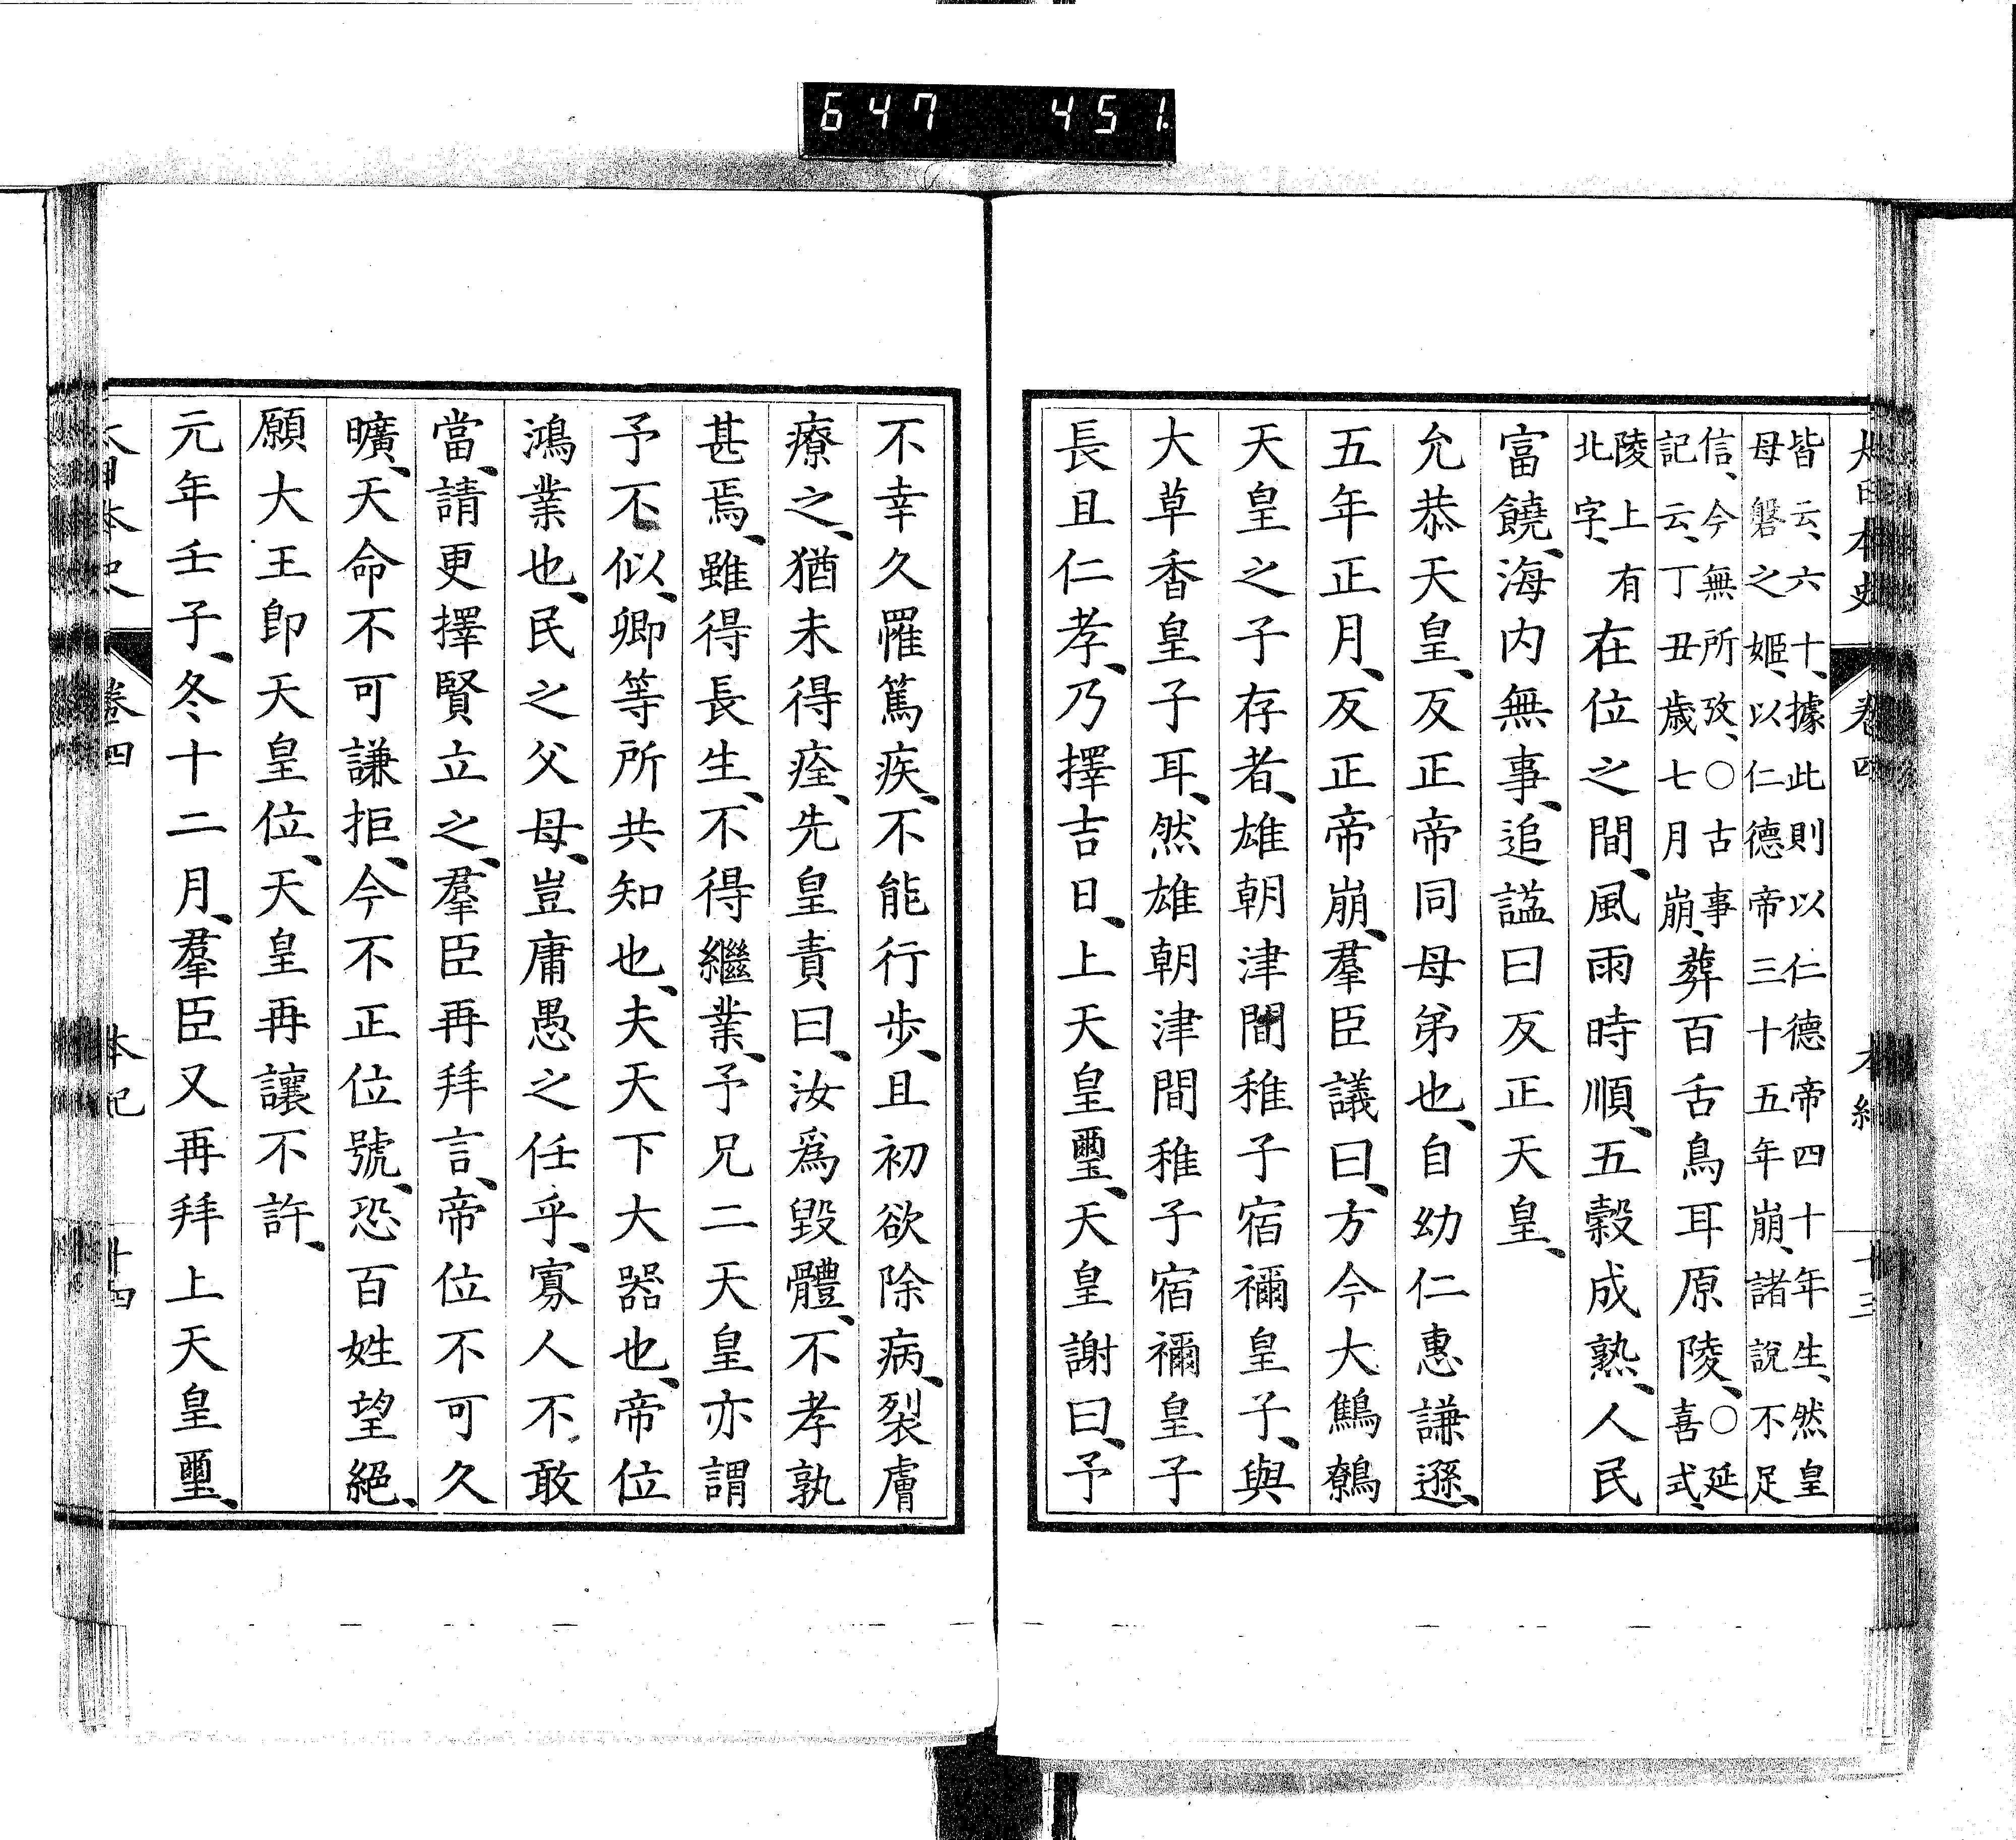 647 451
大日本史 卷四 本紀 十三
皆云、六十、據此則以仁德帝四十年生、然皇
母磐之姬、以仁德帝三十五年崩、諸說不足
信、今無所攷、〇古事
記云、丁丑歲七月崩、葬百舌鳥耳原陵、〇延
喜式、
陵上有
北字、在位之間、風雨時順、五穀成熟、人民
富饒、海内無事、追諡曰反正天皇、
允恭天皇、反正帝同母弟也、自幼仁惠謙遜、
五年正月、反正帝崩、羣臣議曰、方今大鷦鷯
天皇之子存者、雄朝津間稚子宿禰皇子、與
大草香皇子耳、然雄朝津間稚子宿禰皇子
長且仁孝、乃擇吉日、上天皇璽、天皇謝曰、予
不幸久罹篤疾、不能行步、且初欲除病、裂膚
療之、猶未得痊、先皇責曰、汝爲毀體、不孝孰
甚焉、雖得長生、不得繼業、予兄二天皇亦謂
予不似、卿等所共知也、夫天下大器也、帝位
鴻業也、民之父母、豈庸愚之任乎、寡人不敢
當、請更擇賢立之、羣臣再拜言、帝位不可久
曠、天命不可謙拒、今不正位號、恐百姓望絕、
願大王卽天皇位、天皇再讓不許、
元年壬子、冬十二月、羣臣又再拜上天皇璽、
大日本史 卷四 本紀 十四